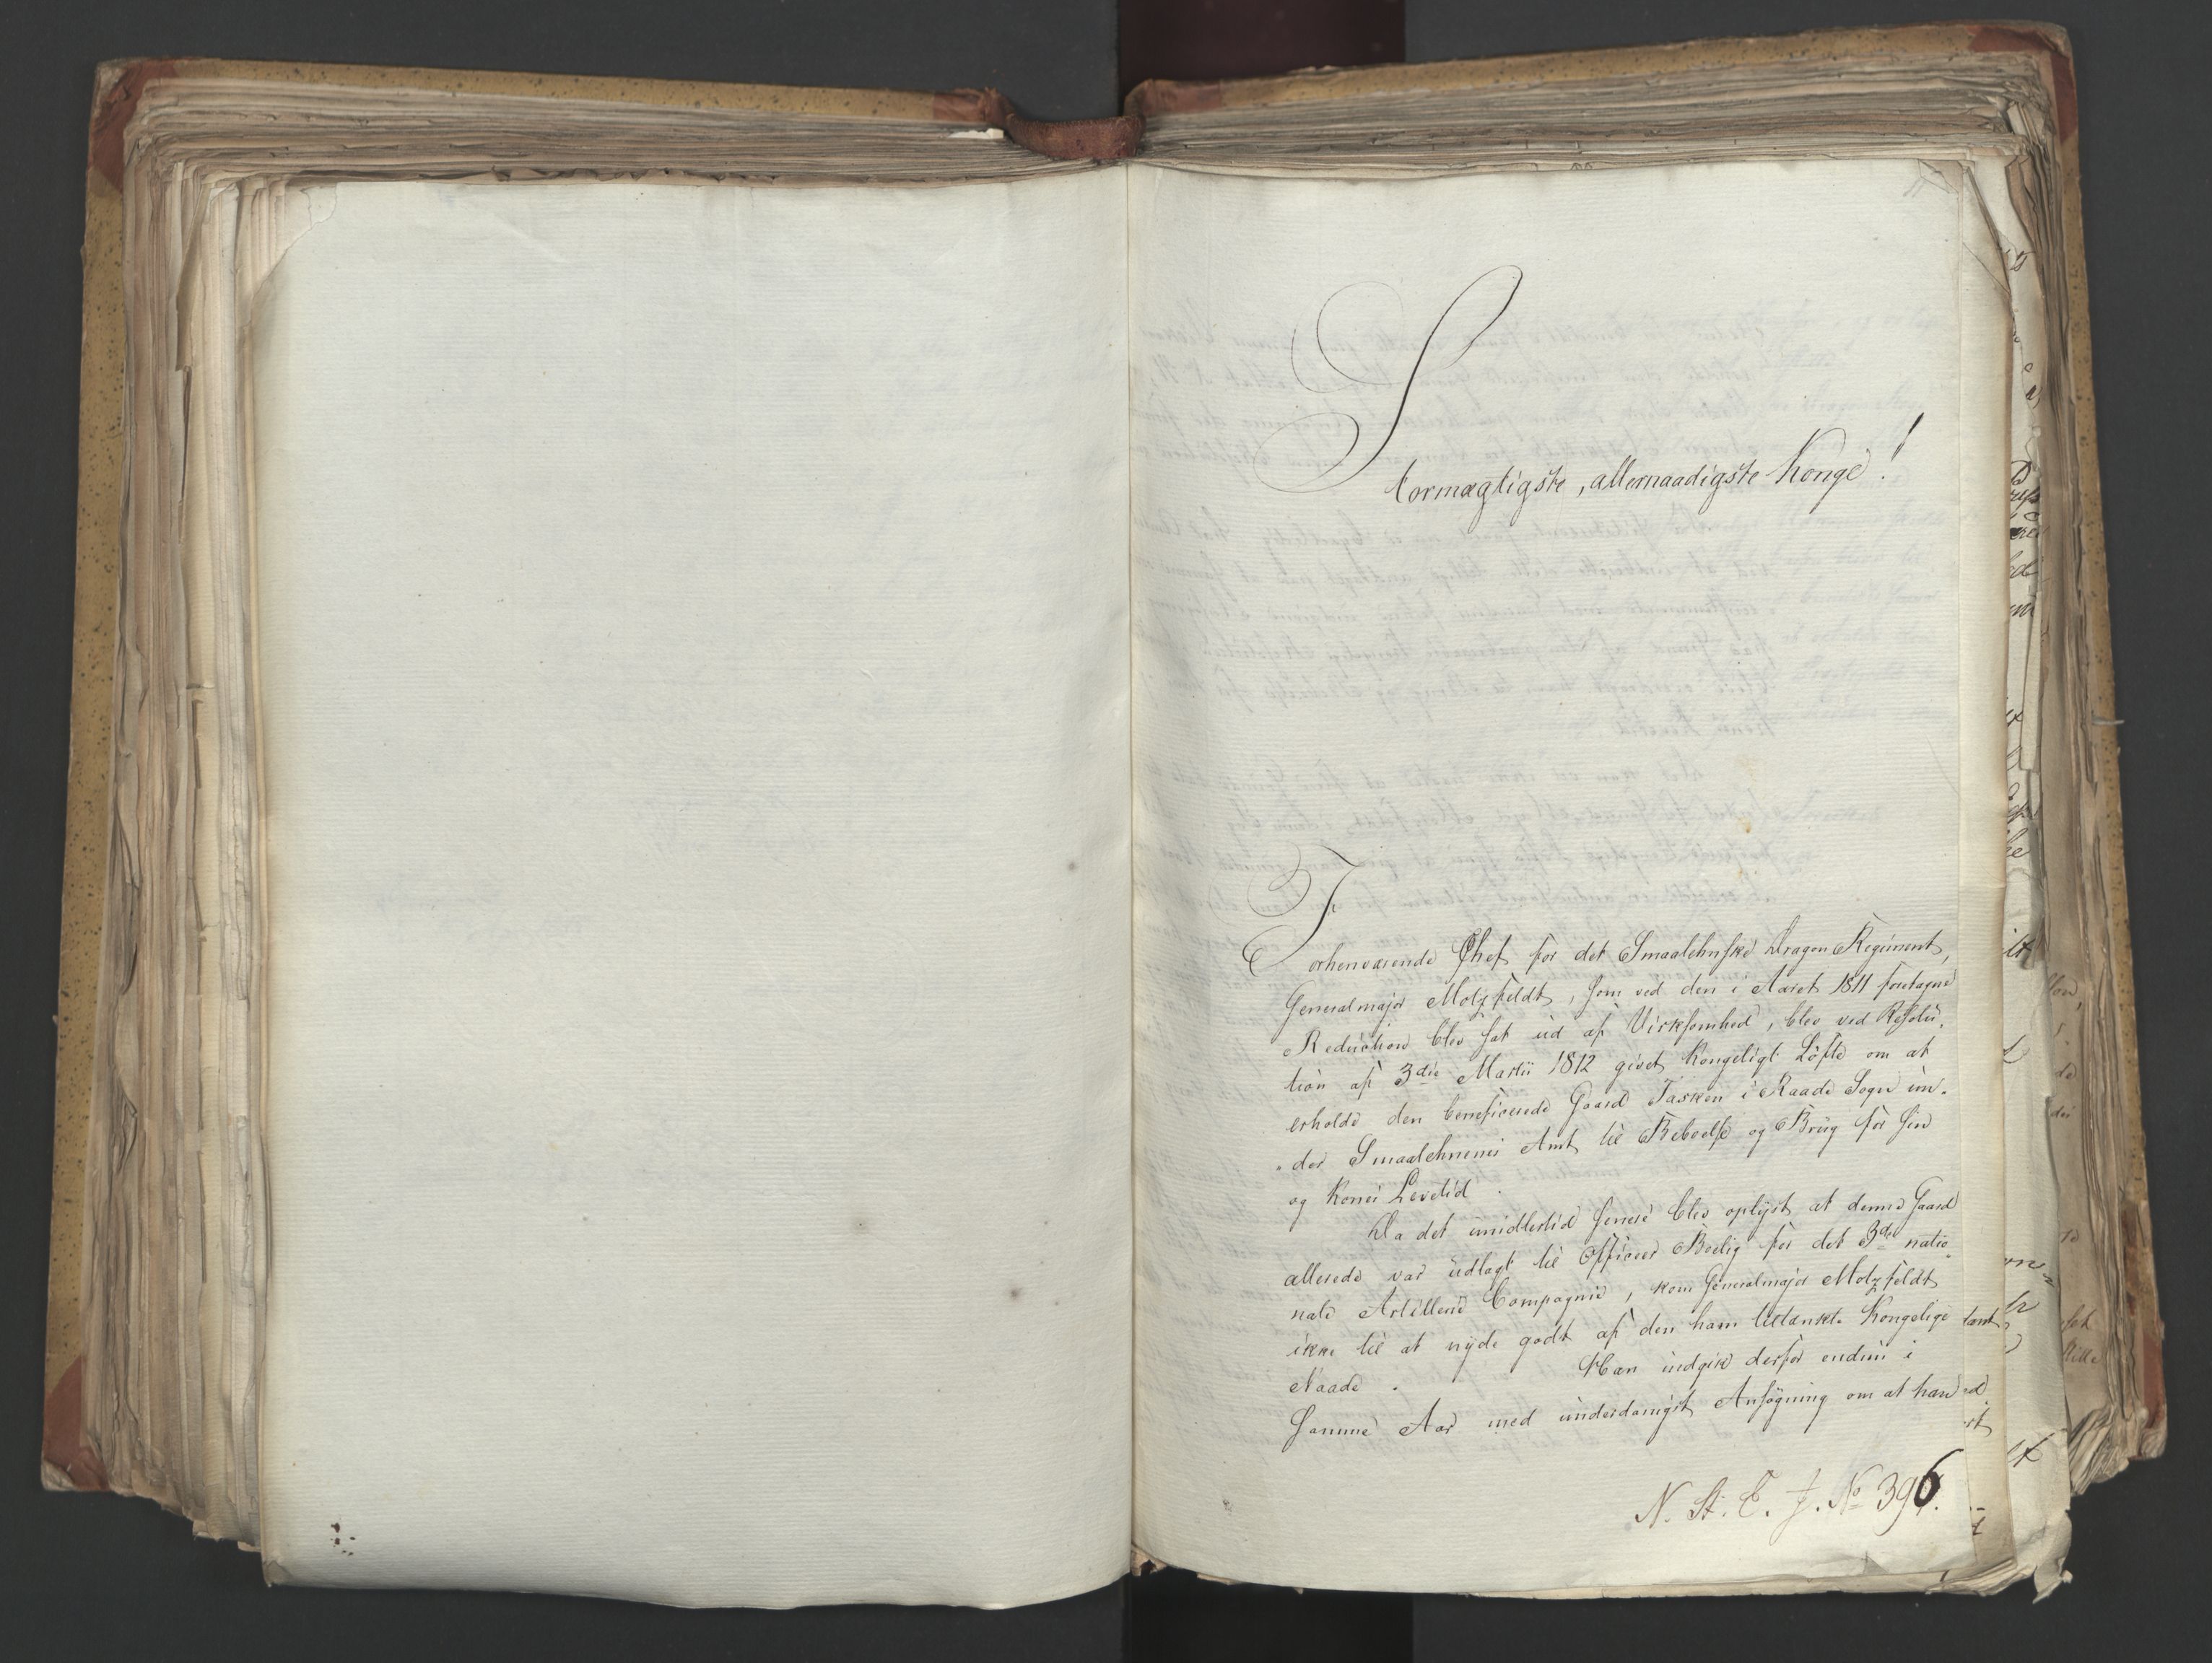 Stormægtigste, allernaadigste Konge!
Forhenværende Chef for det Smaalehnske Dragon Regiment,
Generalmajor Motzfeldt, som ved den i Aaret 1811 foretagne
Reduction blev sat ud af Virksomhed, blev ved Resolu-
tion af 3die Martii 1812 givet Kongeligt Løfte om at
erholde den beneficerede Gaard Tasken i Raade Sogn un-
der Smaalehnenes Amt til Beboelse og Brug for sin
og Kones Levetid.
Da det imidlertid senere blev oplyst at denne Gaard
allerede var udlagt til Officeer Boelig for det 3die natio-
nale Artillerie Compagnie, kom Generalmajor Motzfeldt
ikke til at nyde godt af den ham tiltænkte Kongelige
Naade. Han indgik derfor endnu i
samme Aar med underdanigst Ansøgning om at han
N. St. C. J. No 396.